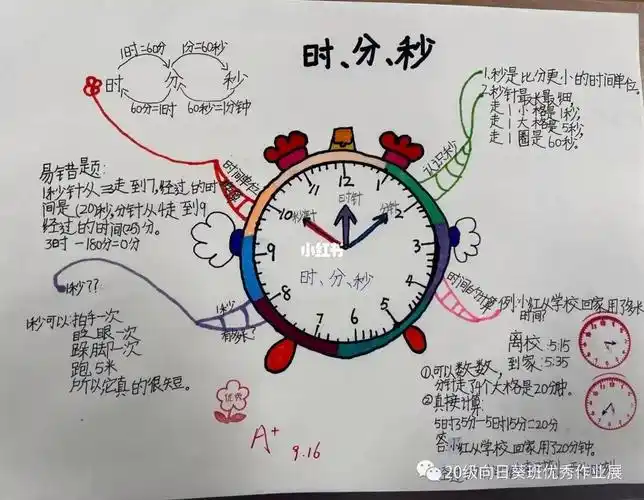 时、分、秒
1时=60分
1分=60秒
时
分
秒
60分=1时
60秒=1分钟
时间单位
认识秒
1.秒是比分更小的时间单位。
2.秒针最长最细,
走1小格是1秒,
走1大格是5秒,
走1圈是60秒。
易错题:
1秒针从三走到7,经过的时
间是(20)秒,分针从4走到9
经过的时间(25)分。
3时-180分=0分
12
时针
10
秒针
分针
2
小红书
9
3
时、分、秒
8
4
7
6
5
1秒??
1秒
有多长?
1秒可以:拍手一次
眨眼一次
跺脚一次
跑5米
所以它真的很短。
时间的计算
例:小红从学校回家用了多长
时间?
离校:5:15
到家:5:35
①可以数一数,
分针走了4个大格是20分钟。
②直接计算:
5时35分-5时15分=20分
答:小红从学校回家用了20分钟。
优秀
A+
9.16
20级向日葵班优秀作业展